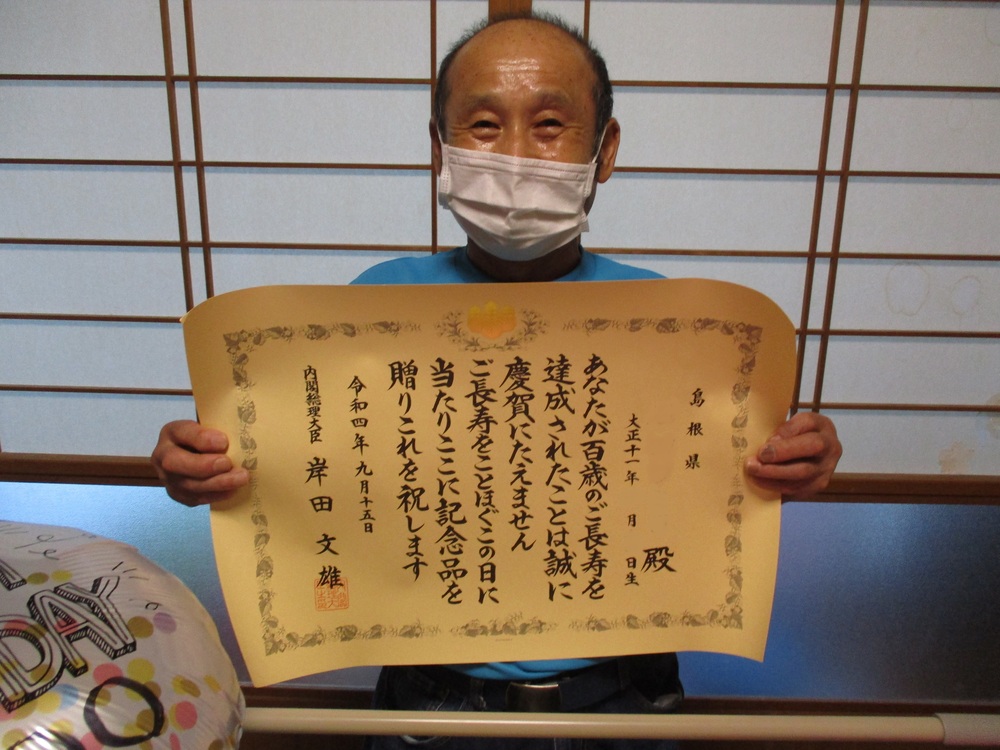 島根県
殿
大正十一年 月 日生
あなたが百歳のご長寿を
達成されたことは誠に
慶賀にたえません
ご長寿をことほぐこの日に
当たりここに記念品を
贈りこれを祝します
令和四年九月十五日
内閣総理大臣 岸田文雄
DAY